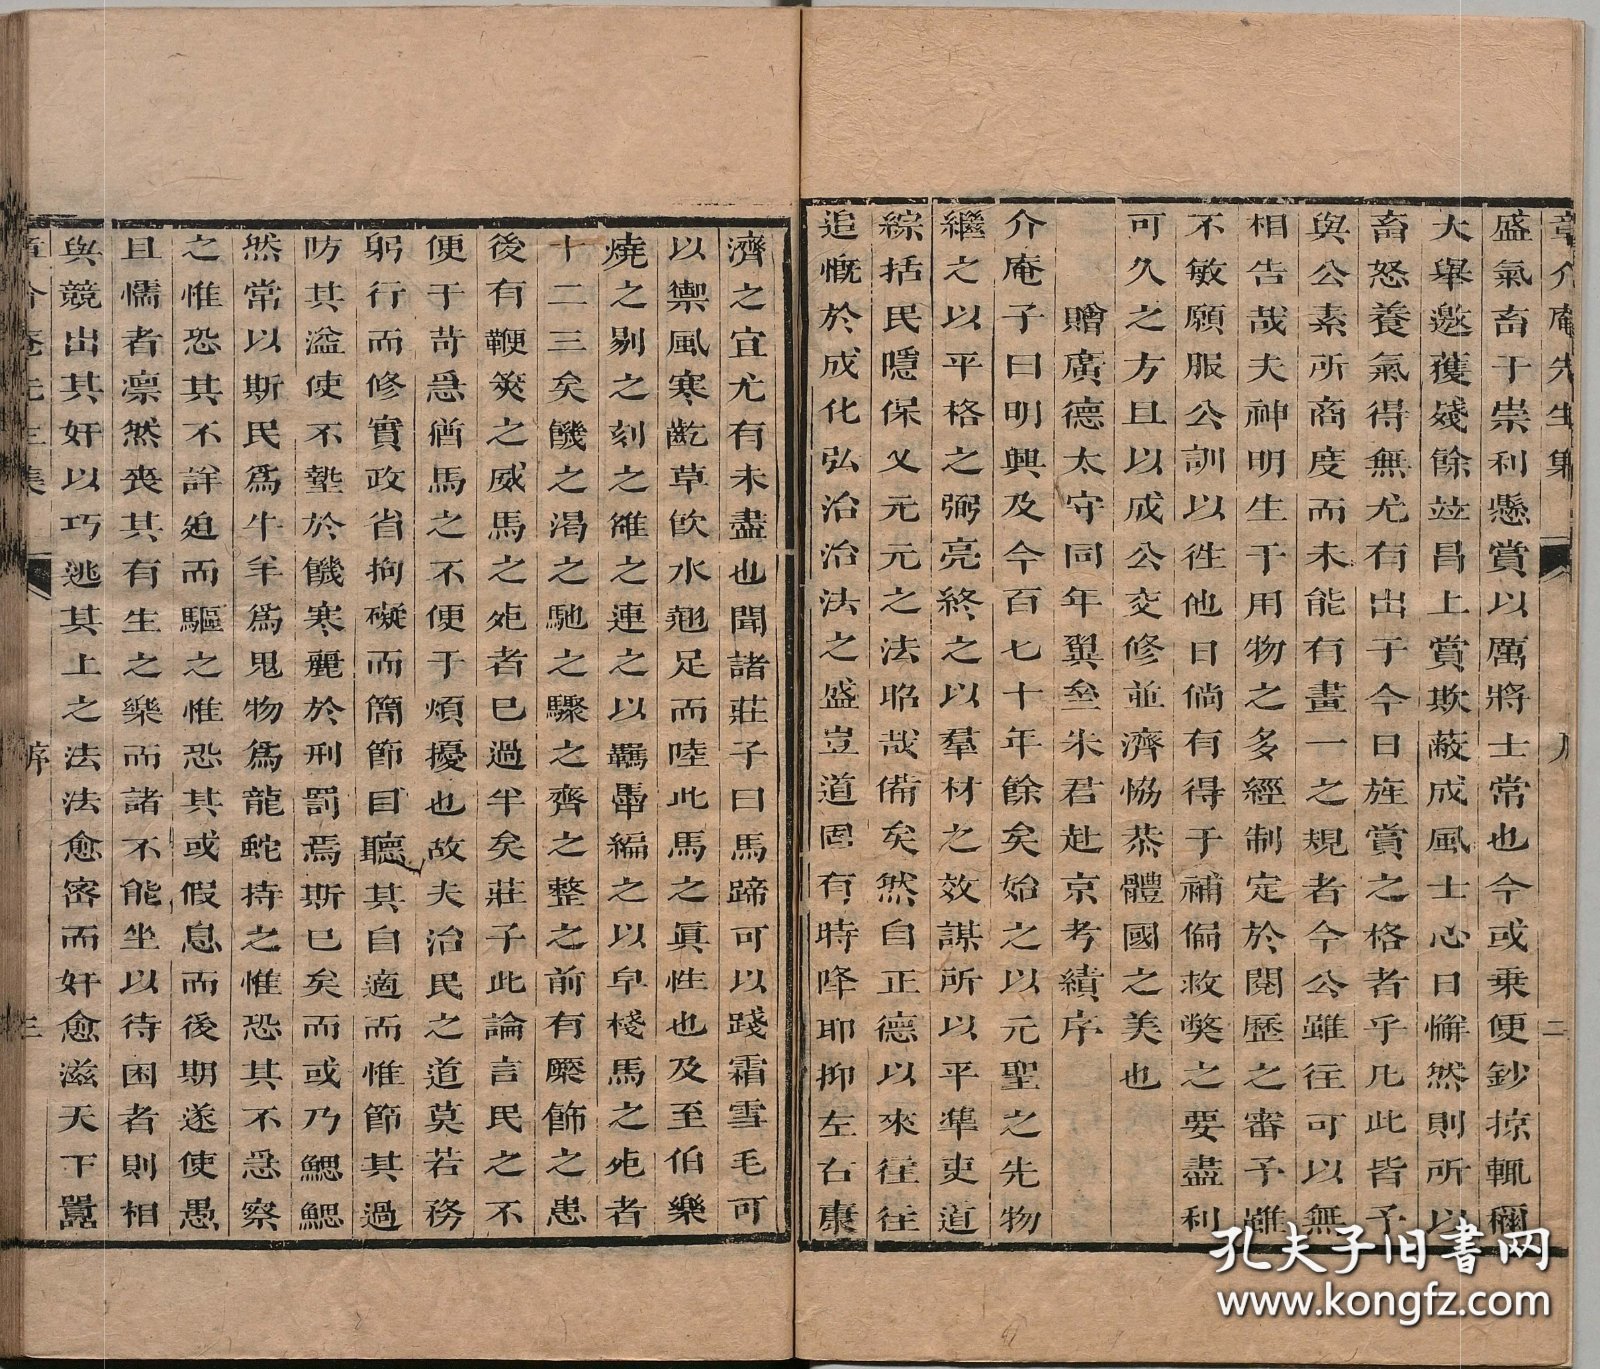 章介庵先生集 二
盛氣畜于祟利懸賞以厲將士常也今或乗便鈔掠輒稱
大舉邀獲殘餘竝昌上賞欺蔽成風士心日懈然則所以
畜怒養氣得無尤有出于今日旌賞之格者乎凡此皆予
與公素所商度而未能有畫一之規者今公雖往可以無
相告哉夫神明生于用物之多經制定於閱歷之審予雖
不敏願服公訓以徃他日倘有得于補偏救獘之要盡利
可久之方且以成公交修並濟恊恭體國之美也
贈廣德太守同年翼壘朱君赴京考績序
介庵子曰明興及今百七十年餘矣始之以元聖之先物
繼之以平格之弼亮終之以羣材之效謀所以平凖吏道
綜括民隱保乂元元之法昭哉備矣然自正德以來徃徃
追慨於成化弘治治法之盛豈道固有時降耶抑左右康
濟之宜尤有未盡也聞諸莊子曰馬蹄可以踐霜雪毛可
以禦風寒齕草飲水翹足而陸此馬之眞性也及至伯樂
燒之剔之刻之雒之連之以羈馽編之以皁棧馬之死者
十二三矣饑之渴之馳之驟之齊之整之前有橜飾之患
後有鞭筴之威馬之死者巳過半矣莊子此論言民之不
便于苛急猶馬之不便于煩擾也故夫治民之道莫若務
躬行而修實政省拘礙而簡節目聽其自適而惟節其過
防其溢使不墊於饑寒麗於刑罰焉斯巳矣而或乃鰓鰓
然常以斯民爲牛羊爲鬼物爲龍蛇持之惟恐其不急察
之惟恐其不詳廹而驅之惟恐其或假息而後期遂使愚
且懦者凛然喪其有生之樂而諸不能坐以待困者則相
與競出其奸以巧逃其上之法法愈密而奸愈滋天下囂
章介庵先生集 序 三
孔夫子旧书网
www.kongfz.com